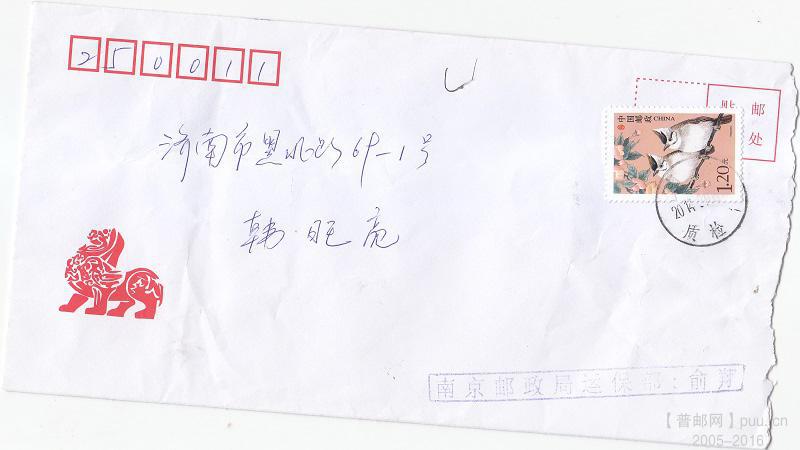 250011
贴 邮
票 处
中国邮政 CHINA
1.20元
济南市黑虎路69-1号
韩旺亮
质检
南京邮政局运保部：俞翔
【普邮网】puu.cn
2005-2016